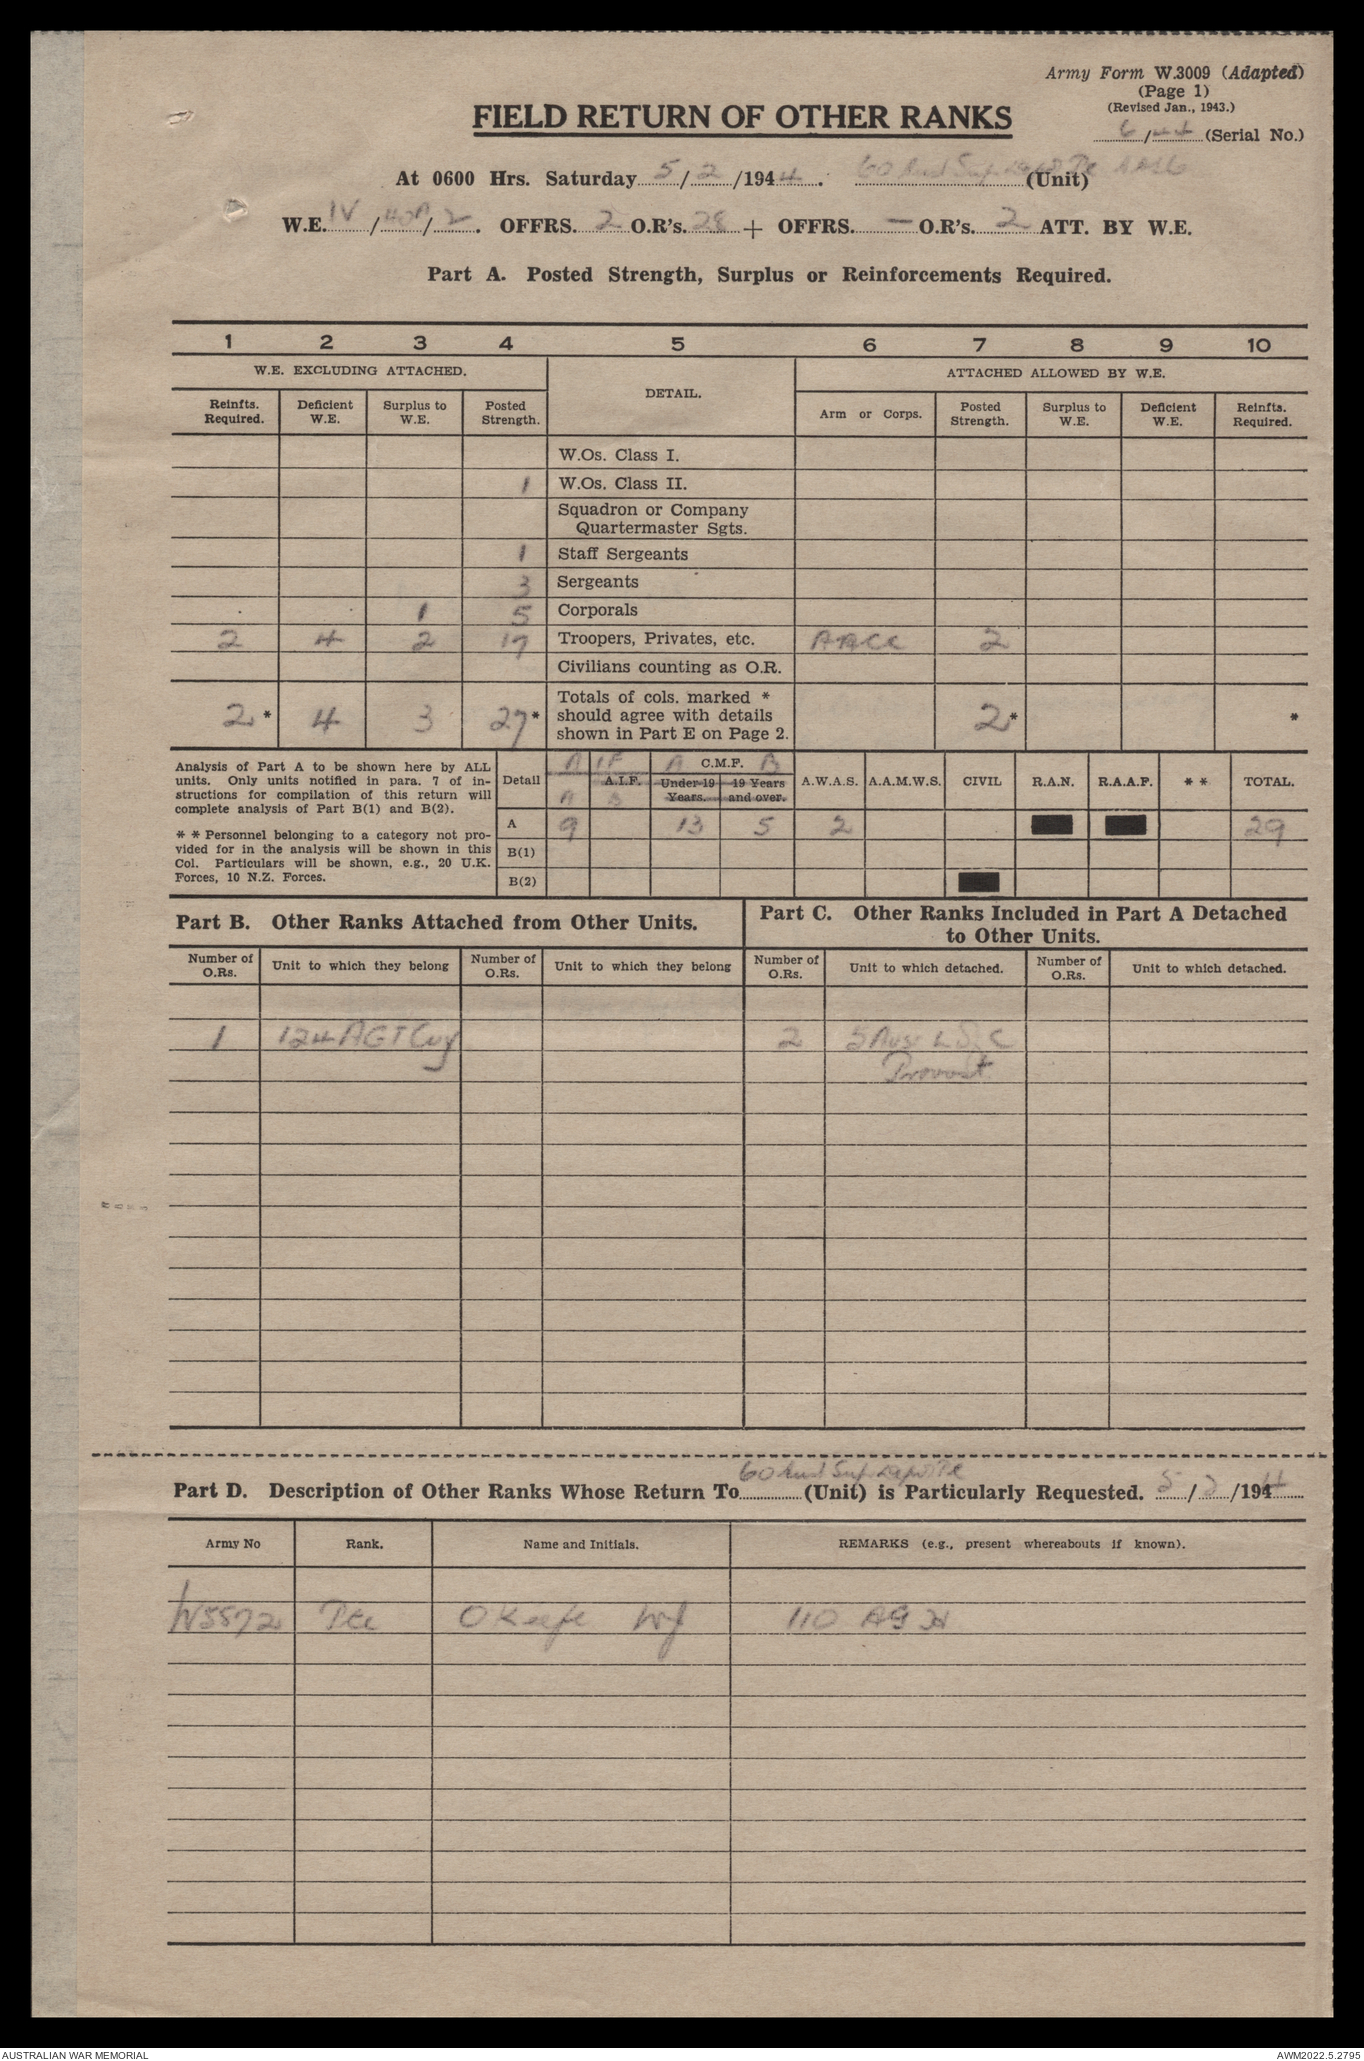 Army Form W.3009 (Adapted)
(Page 1)
(Revised Jan., 1943.)
6/44 (Serial No.)
FIELD RETURN OF OTHER RANKS
At 0600 Hrs. Saturday 5/2/1944. 60 Aust Sup Depot Pl AASC (Unit)
W.E. IV / 40A / 2. OFFRS. 2 O.R's. 28 + OFFRS. — O.R's. 2 ATT. BY W.E.
Part A. Posted Strength, Surplus or Reinforcements Required.
1 2 3 4 5 6 7 8 9 10
W.E. EXCLUDING ATTACHED. DETAIL. ATTACHED ALLOWED BY W.E.
Reinfts. Required. Deficient W.E. Surplus to W.E. Posted Strength. Arm or Corps. Posted Strength. Surplus to W.E. Deficient W.E. Reinfts. Required.
W.Os. Class I.
1 W.Os. Class II.
Squadron or Company
Quartermaster Sgts.
1 Staff Sergeants
3 Sergeants
1 5 Corporals
2 4 2 17 Troopers, Privates, etc. AACC 2
Civilians counting as O.R.
Totals of cols. marked *
2* 4 3 27* should agree with details 2* *
shown in Part E on Page 2.
Analysis of Part A to be shown here by ALL
units. Only units notified in para. 7 of in-
structions for compilation of this return will
complete analysis of Part B(1) and B(2).
* * Personnel belonging to a category not pro-
vided for in the analysis will be shown in this
Col. Particulars will be shown, e.g., 20 U.K.
Forces, 10 N.Z. Forces.
A IF A C.M.F. B
Detail A.I.F. Under 19 Years. 19 Years and over. A.W.A.S. A.A.M.W.S. CIVIL R.A.N. R.A.A.F. * * TOTAL.
A B
A 9 13 5 2 29
B(1)
B(2)
Part B. Other Ranks Attached from Other Units.
Part C. Other Ranks Included in Part A Detached
to Other Units.
Number of O.Rs. Unit to which they belong Number of O.Rs. Unit to which they belong Number of O.Rs. Unit to which detached. Number of O.Rs. Unit to which detached.
1 124 AGT Coy 2 5 Aus L S C
Provost
Part D. Description of Other Ranks Whose Return To 60 Aust Sup Depot Pl (Unit) is Particularly Requested. 5/2/1944
Army No Rank. Name and Initials. REMARKS (e.g., present whereabouts if known).
W5572 Pte O'Keefe WJ 110 AGH
AUSTRALIAN WAR MEMORIAL
AWM2022.5.2795